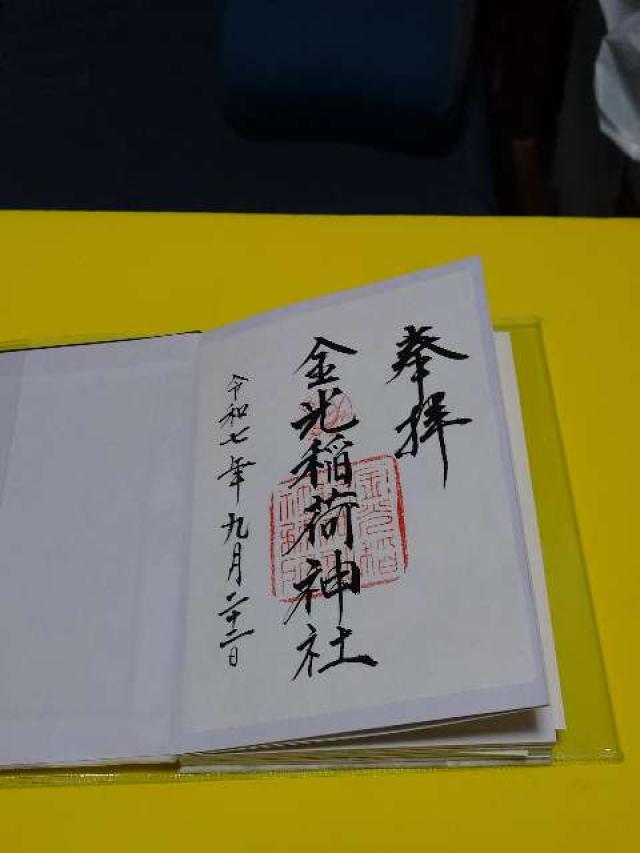 奉拝
金光稲荷神社
令和七年九月二十二日